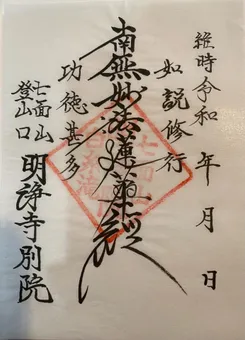 維時令和　年　月　日
如説修行
南無妙法蓮華経
功徳甚多
七面山
登山口
明浄寺別院